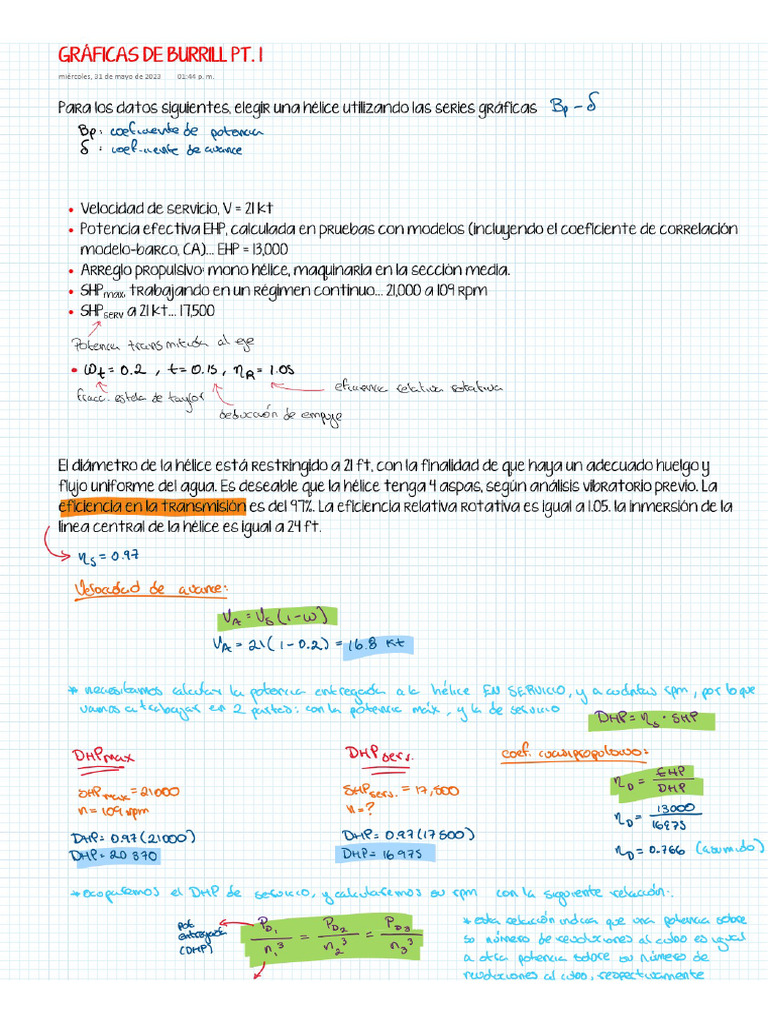 GRÁFICAS DE BURRILL PT. 1
miércoles, 31 de mayo de 2023 01:44 p. m.
Para los datos siguientes, elegir una hélice utilizando las series gráficas Bp - δ
Bp: coeficiente de potencia
δ : coeficiente de avance
• Velocidad de servicio, V = 21 kt
• Potencia efectiva EHP, calculada en pruebas con modelos (incluyendo el coeficiente de correlación
modelo-barco, CA)... EHP = 13,000
• Arreglo propulsivo: mono hélice, maquinaria en la sección media.
• SHPmax, trabajando en un régimen continuo... 21,000 a 109 rpm
• SHPSERV a 21 kt... 17,500
Potencia transmitida al eje
• ωt = 0.2 , t = 0.15 , ηR = 1.05
eficiencia relativa rotativa
fracc. estela de taylor
deducción de empuje
El diámetro de la hélice está restringido a 21 ft, con la finalidad de que haya un adecuado huelgo y
flujo uniforme del agua. Es deseable que la hélice tenga 4 aspas, según análisis vibratorio previo. La
eficiencia en la transmisión es del 97%. La eficiencia relativa rotativa es igual a 1.05. la inmersión de la
línea central de la hélice es igual a 24 ft.
ηs = 0.97
Velocidad de avance:
VA = Vs (1-ω)
VA = 21 (1 - 0.2) = 16.8 kt
* necesitamos calcular la potencia entregada a la hélice EN SERVICIO, y a cuántas rpm, por lo que
vamos a trabajar en 2 partes: con la potencia máx, y la de servicio
DHP = ηs · SHP
DHPmax
DHPserv.
coef. cuasipropulsivo:
SHPmax = 21000
n = 109 rpm
SHPserv. = 17,500
n = ?
ηD = EHP / DHP
ηD = 13000 / 16975
DHP = 0.97 (21000)
DHP = 0.97 (17500)
ηD = 0.766 (asumido)
DHP = 20 370
DHP = 16 975
* ocuparemos el DHP de servicio, y calcularemos su rpm con la siguiente relación:
pot. entregada (DHP)
PD1 / n1³ = PD2 / n2³ = PD3 / n3³
* esta relación indica que una potencia sobre
su número de revoluciones al cubo es igual
a otra potencia sobre su número de
revoluciones al cubo, respectivamente